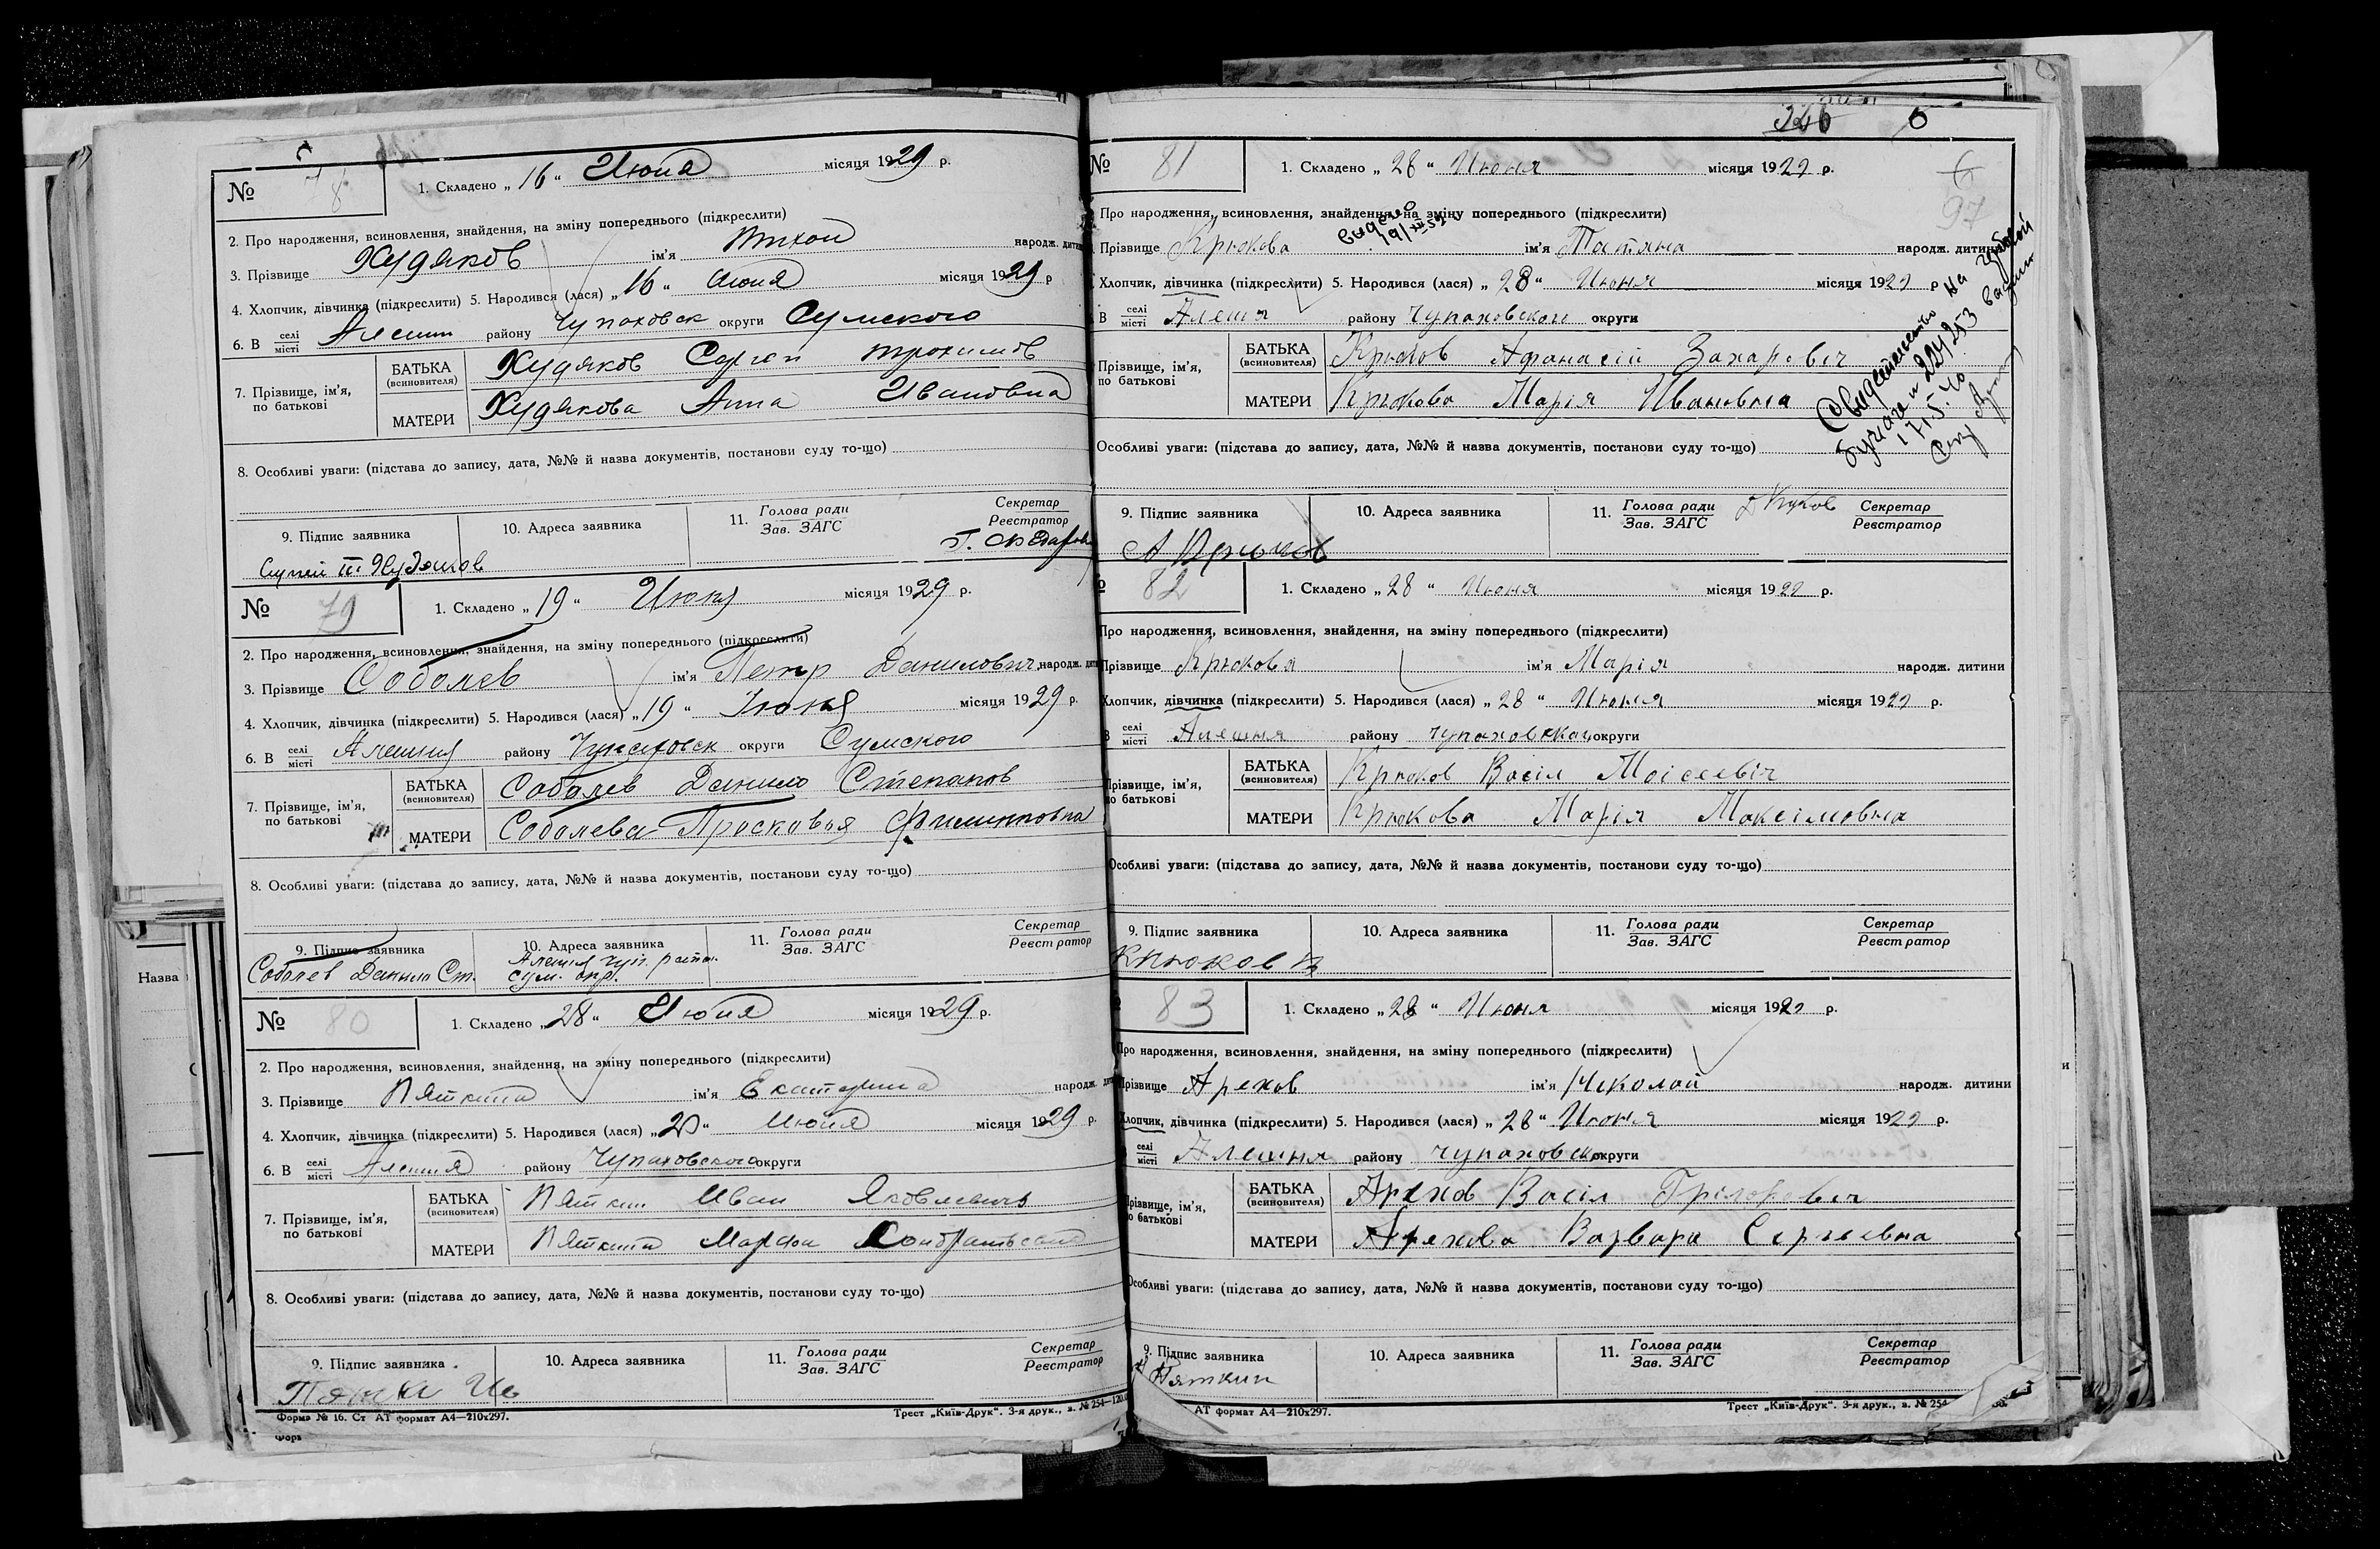 № 78 1. Складено „16“ Июня місяця 1929 р.
2. Про народження, всиновлення, знайдення, на зміну попереднього (підкреслити)
3. Прізвище Худяков ім'я Тихон народж. дити
4. Хлопчик, дівчинка (підкреслити) 5. Народився (лася) „16“ Июня місяця 1929 р
6. В селі місті Алешни району Чупаховск округи Сумского
7. Прізвище, ім'я, по батькові
БАТЬКА (всиновителя) Худяков Сергей Трохимов
МАТЕРИ Худякова Анна Ивановна
8. Особливі уваги: (підстава до запису, дата, №№ й назва документів, постанови суду то-що)
9. Підпис заявника 10. Адреса заявника 11. Голова ради Зав. ЗАГС Секретар Реєстратор
Худяков
№ 79 1. Складено „19“ Июня місяця 1929 р.
2. Про народження, всиновлення, знайдення, на зміну попереднього (підкреслити)
3. Прізвище Соболев ім'я Петр Данилович народж. дити
4. Хлопчик, дівчинка (підкреслити) 5. Народився (лася) „19“ Июня місяця 1929 р.
6. В селі місті Алешня району Чупаховск округи Сумского
7. Прізвище, ім'я, по батькові
БАТЬКА (всиновителя) Соболев Данило Степанов
МАТЕРИ Соболева Просковья Филипповна
8. Особливі уваги: (підстава до запису, дата, №№ й назва документів, постанови суду то-що)
9. Підпис заявника 10. Адреса заявника 11. Голова ради Зав. ЗАГС Секретар Реєстратор
Соболев Данило Ст. Алешня Чуп. район.
Сум. окр.
№ 80 1. Складено „28“ Июня місяця 1929 р.
2. Про народження, всиновлення, знайдення, на зміну попереднього (підкреслити)
3. Прізвище Пяткина ім'я Екатерина народж. дити
4. Хлопчик, дівчинка (підкреслити) 5. Народився (лася) Июня місяця 1929 р.
6. В селі місті Алешня району Чупаховского округи
7. Прізвище, ім'я, по батькові
БАТЬКА (всиновителя) Пяткин Иван Яковлевичь
МАТЕРИ Пяткина Марфа
8. Особливі уваги: (підстава до запису, дата, №№ й назва документів, постанови суду то-що)
9. Підпис заявника 10. Адреса заявника 11. Голова ради Зав. ЗАГС Секретар Реєстратор
Форма № 16. Ст АТ формат А4—210х297. Трест „Київ-Друк“. 3-я друк., з. № 254—120
Форм
326 6
6
97
№ 81 1. Складено „28“ Июня місяця 1929 р.
Про народження, всиновлення, знайдення, на зміну попереднього (підкреслити)
выдано
Прізвище Крюкова ім'я Татяна народж. дитини
Хлопчик, дівчинка (підкреслити) 5. Народився (лася) „28“ Июня місяця 1929 р
В селі місті Алешня району Чупаховскои округи
Прізвище, ім'я, по батькові
БАТЬКА (всиновителя) Крюков Афанасій Захаровіч
МАТЕРИ Крюкова Марія Ивановна
Свидетельство на гербовой
бумаге № 224253 выдано
17/5.40
Особливі уваги: (підстава до запису, дата, №№ й назва документів, постанови суду то-що)
9. Підпис заявника 10. Адреса заявника 11. Голова ради Зав. ЗАГС Секретар Реєстратор
А Крюков
82 1. Складено „28“ Июня місяця 1929 р.
Про народження, всиновлення, знайдення, на зміну попереднього (підкреслити)
Прізвище Крюкова ім'я Марія народж. дитини
Хлопчик, дівчинка (підкреслити) 5. Народився (лася) „28“ Июня місяця 1929 р.
В селі місті Алешня району Чупаховскаи округи
Прізвище, ім'я, по батькові
БАТЬКА (всиновителя) Крюков Васіл Моісеевіч
МАТЕРИ Крюкова Марія Максімовна
Особливі уваги: (підстава до запису, дата, №№ й назва документів, постанови суду то-що)
9. Підпис заявника 10. Адреса заявника 11. Голова ради Зав. ЗАГС Секретар Реєстратор
83 1. Складено „28“ Июня місяця 1929 р.
Про народження, всиновлення, знайдення, на зміну попереднього (підкреслити)
Прізвище Арехов ім'я Ніколай народж. дитини
Хлопчик, дівчинка (підкреслити) 5. Народився (лася) „28“ Июня місяця 1929 р.
селі місті Алешня району Чупаховско округи
Прізвище, ім'я, по батькові
БАТЬКА (всиновителя) Арехов Васіл Грігоровіч
МАТЕРИ Арехова Варвара Сергеевна
Особливі уваги: (підстава до запису, дата, №№ й назва документів, постанови суду то-що)
9. Підпис заявника 10. Адреса заявника 11. Голова ради Зав. ЗАГС Секретар Реєстратор
Пяткин
АТ формат А4—210х297. Трест „Київ-Друк“. 3-я друк., з. № 254
Назва